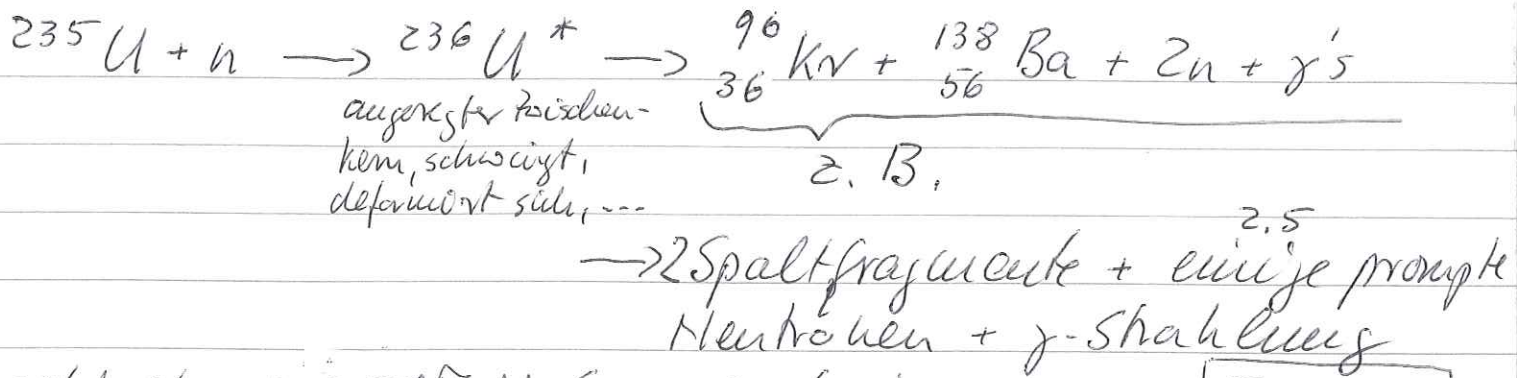 ²³⁵U + n → ²³⁶U* → ⁹⁶₃₆Kr + ¹³⁸₅₆Ba + 2n + γ's
angeregter Zwischen-
kern, schwingt,
deformiert sich, ...
z. B.
2.5
→ 2 Spaltfragmente + einige prompte
Neutronen + γ-Strahlung